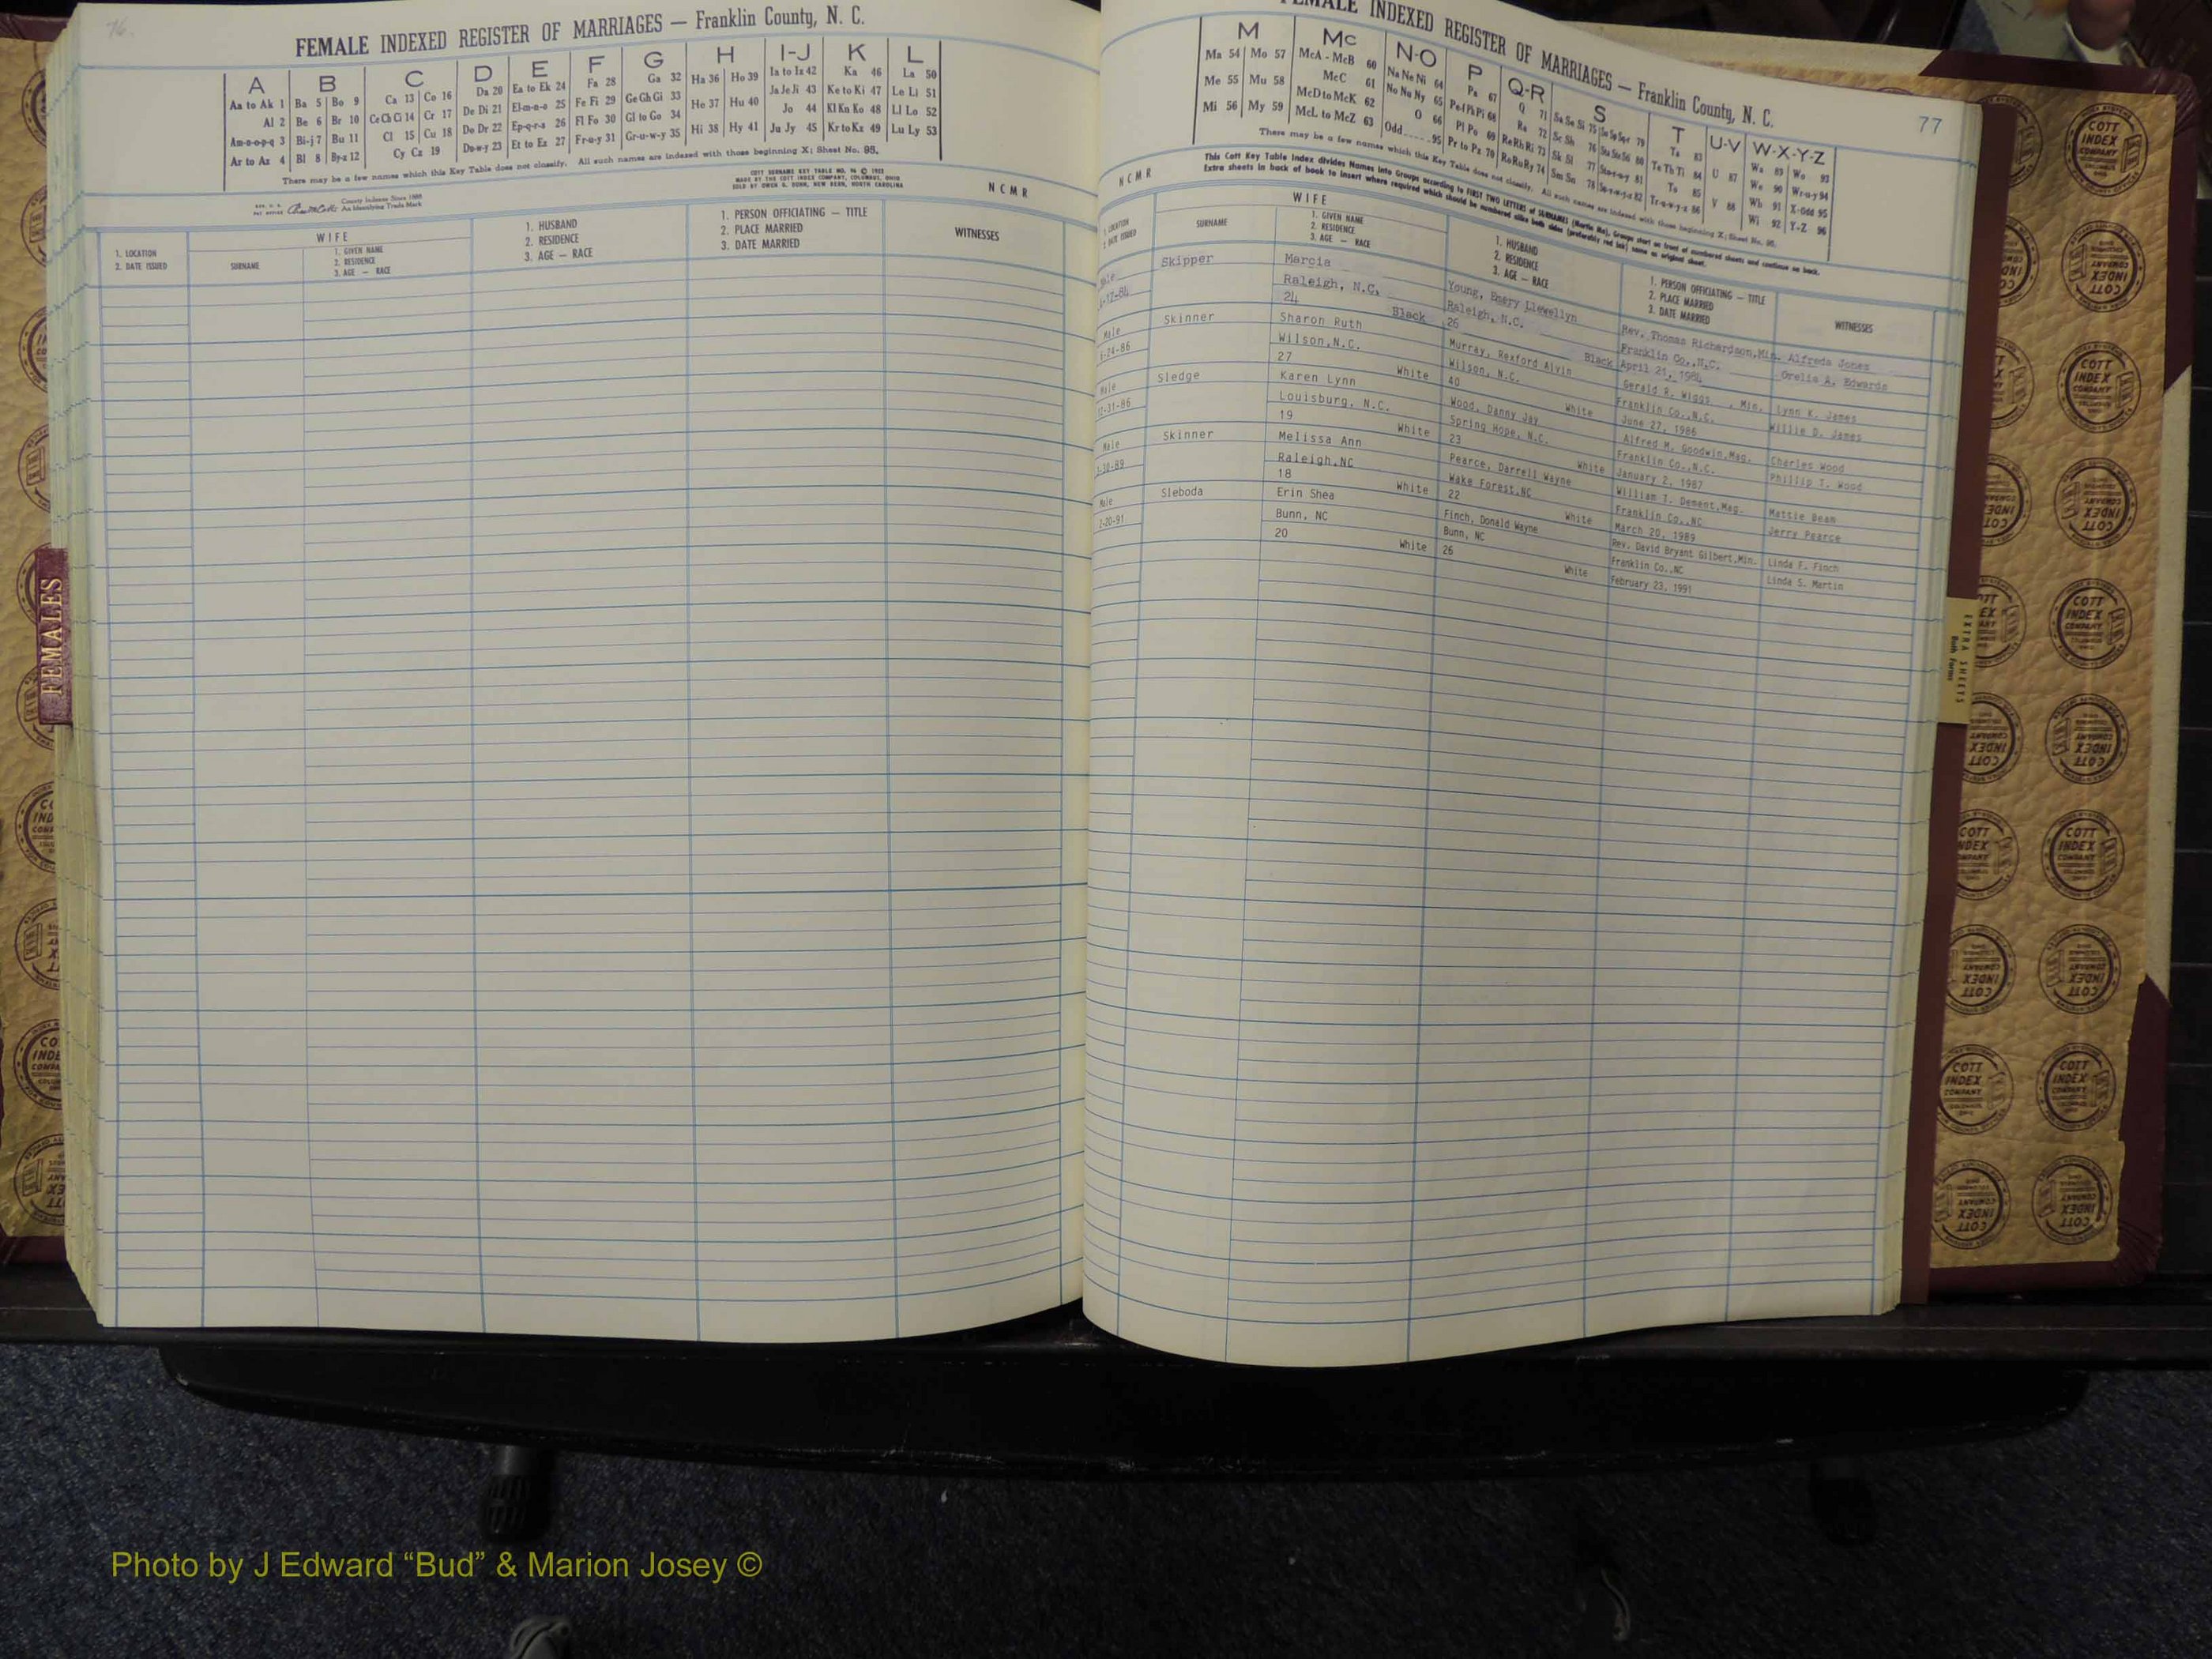 76
FEMALE INDEXED REGISTER OF MARRIAGES — Franklin County, N. C.
A B C D E F G H I-J K L
Aa to Ak 1 Ba 5 Bo 9 Ca 13 Co 16 Da 20 Ea to Ek 24 Fa 28 Ga 32 Ha 36 Ho 39 Ia to Iz 42 Ka 46 La 50
Al 2 Be 6 Br 10 Ce Ch Ci 14 Cr 17 De Di 21 El-m-n-o 25 Fe Fi 29 Ge Gh Gi 33 He 37 Hu 40 Ja Je Ji 43 Ke to Ki 47 Le Li 51
Am-n-o-p-q 3 Bi-j 7 Bu 11 Cl 15 Cu 18 Do Dr 22 Ep-q-r-s 26 Fl Fo 30 Gl to Go 34 Jo 44 Kl Kn Ko 48 Ll Lo 52
Ar to Az 4 Bl 8 By-z 12 Cy Cz 19 Du-w-y 23 Et to Ez 27 Fr-u-y 31 Gr-u-w-y 35 Hi 38 Hy 41 Ju Jy 45 Kr to Kz 49 Lu Ly 53
There may be a few names which this Key Table does not classify. All such names are indexed with those beginning X; Sheet No. 95.
County Indexes Since 1888
An Identifying Trade Mark
MADE BY THE COTT INDEX COMPANY, COLUMBUS, OHIO
SOLD BY OWEN G. DUNN, NEW BERN, NORTH CAROLINA
N C M R
1. LOCATION
2. DATE ISSUED
WIFE
SURNAME
1. GIVEN NAME
2. RESIDENCE
3. AGE — RACE
1. HUSBAND
2. RESIDENCE
3. AGE — RACE
1. PERSON OFFICIATING — TITLE
2. PLACE MARRIED
3. DATE MARRIED
WITNESSES
FEMALES
FEMALE INDEXED REGISTER OF MARRIAGES — Franklin County, N. C.
77
M Mc N-O P Q-R S T U-V W-X-Y-Z
Ma 54 Mo 57 McA - McB 60 Na Ne Ni 64 Pa 67 Q 71 Sa Se Si 75 Ta 83
Me 55 Mu 58 McC 61 No Nu Ny 65 Pe-f Ph Pi 68 Ra 72 Sc Sh 76 Te Th Ti 84 U 87 We 90
Mi 56 My 59 McD to McK 62 O 66 Pl Po 69 Re Rh Ri 73 Sk Sl 77 To 85 Wh 91 X-Odd 95
McL to McZ 63 Odd 95 Pr to Pz 70 Ro Ru Ry 74 Sm Sn 78 Tr-u-w-y-z 86 V 88 Wi 92 Y-Z 96
There may be a few names which this Key Table does not classify. All such names are indexed with those beginning X; Sheet No. 95.
This Cott Key Table Index divides Names into Groups according to FIRST TWO LETTERS of SURNAMES (Martin Ma). Groups start on front of numbered sheets and continue on back.
Extra sheets in back of book to insert where required which should be numbered alike both sides (preferably red ink) same as original sheet.
N C M R
WIFE
SURNAME
1. GIVEN NAME
2. RESIDENCE
3. AGE — RACE
1. HUSBAND
2. RESIDENCE
3. AGE — RACE
1. PERSON OFFICIATING — TITLE
2. PLACE MARRIED
3. DATE MARRIED
WITNESSES
Skipper Marcia Young, Emery Llewellyn Rev. Thomas Richardson,Min. Alfreda Jones
Raleigh, N.C. Raleigh, N.C. Franklin Co.,N.C. Orelia A. Edwards
24 Black 26 Black April 21, 1984
Male Skinner Sharon Ruth Murray, Rexford Alvin Gerald R. Wiggs , Min. Lynn K. James
Wilson,N.C. Wilson, N.C. Franklin Co.,N.C. Willie D. James
27 White 40 White June 27, 1986
Male Sledge Karen Lynn Wood, Danny Jay Alfred M. Goodwin,Mag. Charles Wood
Louisburg, N.C. Spring Hope, N.C. Franklin Co.,N.C. Phillip T. Wood
19 White 23 White January 2, 1987
Male Skinner Melissa Ann Pearce, Darrell Wayne William T. Dement,Mag. Mattie Beam
Raleigh,NC Wake Forest,NC Franklin Co.,NC Jerry Pearce
18 White 22 White March 20, 1989
Male Sleboda Erin Shea Finch, Donald Wayne Rev. David Bryant Gilbert,Min. Linda F. Finch
Bunn, NC Bunn, NC Franklin Co.,NC Linda S. Martin
20 White 26 White February 23, 1991
EXTRA SHEETS
Both Forms
COTT INDEX COMPANY
Photo by J Edward “Bud” & Marion Josey ©